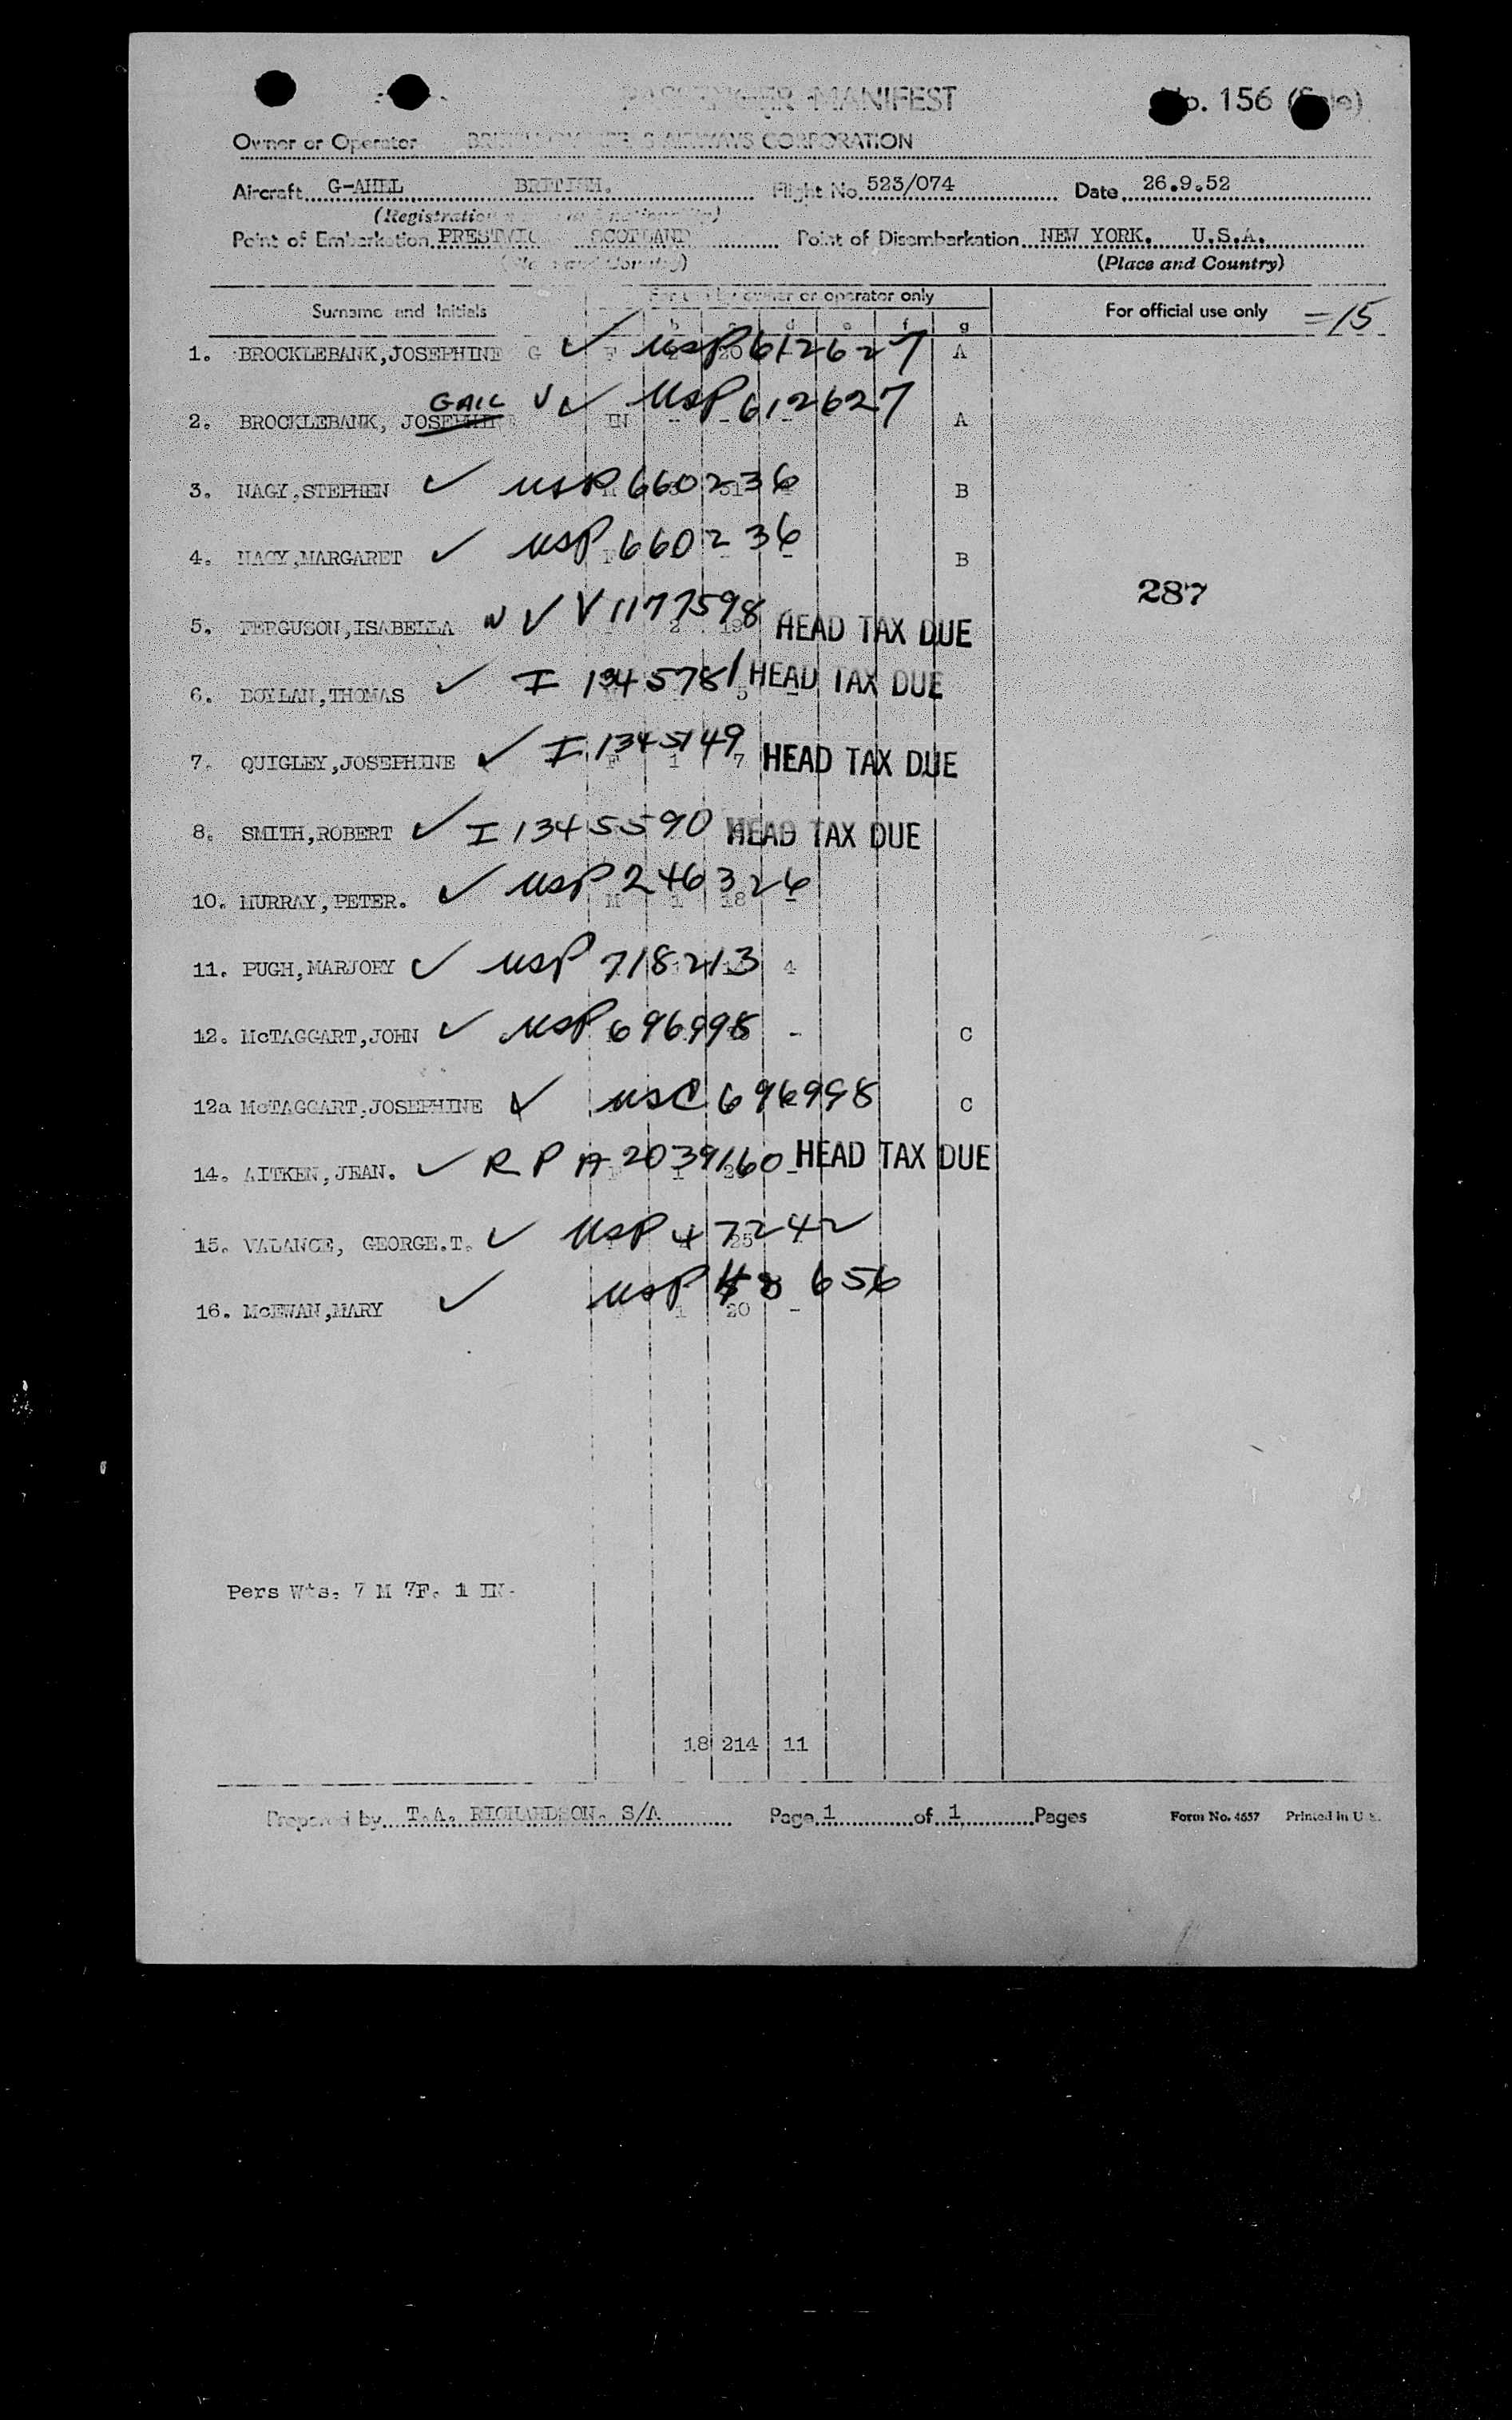 PASSENGER MANIFEST No. 156
Owner or Operator AIRWAYS CORPORATION
Aircraft G-AHEL BRITISH. Flight No. 523/074 Date 26.9.52
(Registration
Point of Embarkation PRESTWIC SCOTLAND Point of Disembarkation NEW YORK. U.S.A.
(Place and Country) (Place and Country)
Surname and Initials For use by owner or operator only For official use only =15
b c d e f g
1. BROCKLEBANK,JOSEPHINE G ✓ F USP 612627 A
GAIL
2. BROCKLEBANK, JOSEPHINE ✓ ✓ IN USP 612627 A
3. NAGY,STEPHEN ✓ USP 660236 B
4. NAGY,MARGARET ✓ USP 660236 B
287
5. FERGUSON,ISABELLA ✓ V 1177598 HEAD TAX DUE
6. BOYLAN,THOMAS ✓ I 1345781 HEAD TAX DUE
7. QUIGLEY,JOSEPHINE ✓ I 1345149 F 1 7 HEAD TAX DUE
8. SMITH,ROBERT ✓ I 1345590 HEAD TAX DUE
10. MURRAY,PETER. ✓ USP 246326 M 1 18 -
11. PUGH,MARJORY ✓ USP 718213 4
12. McTAGGART,JOHN ✓ USP 696998 - C
12a McTAGGART,JOSEPHINE ✓ USC 696998 C
14. AITKEN,JEAN. ✓ R P A 2039160 HEAD TAX DUE
15. VALANCE, GEORGE.T. ✓ USP 47242 25
16. McEWAN,MARY ✓ USP 656 1 20 -
Pers Wts. 7 M 7F. 1 IN.
18 214 11
Prepared by T.A. RICHARDSON. S/A Page 1 of 1 Pages Form No. 4657 Printed in U.S.